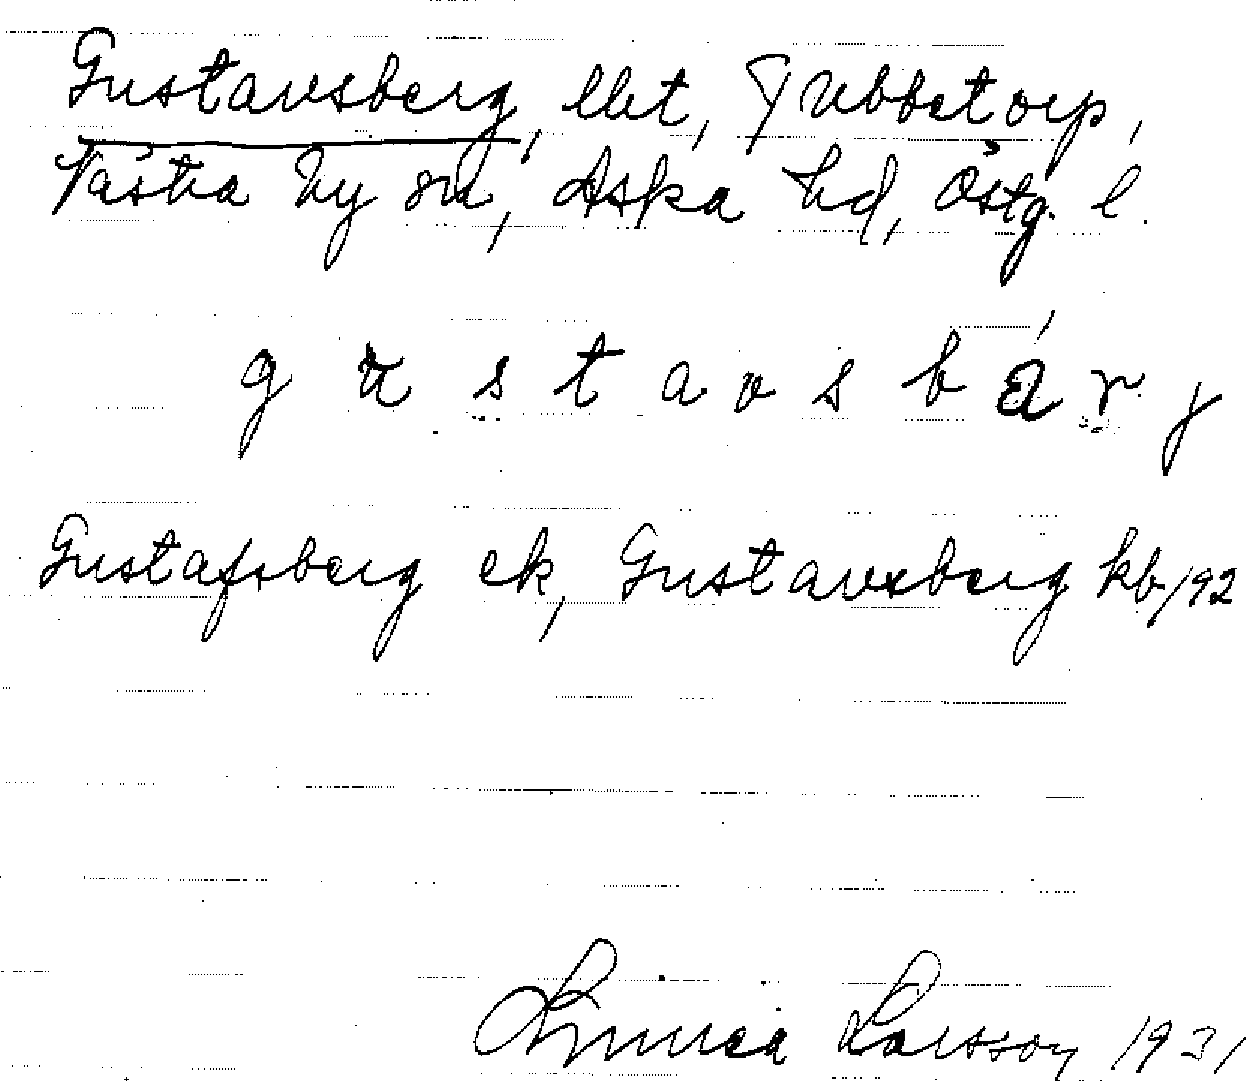 Gustavsberg, lht, Tubbetorp,
Västra Ny sn, Aska hd, Östg. l.
g u s t a v s b ä́ r j
Gustafsberg ek, Gustavsberg kb/92
Linnéa Larsson 1931